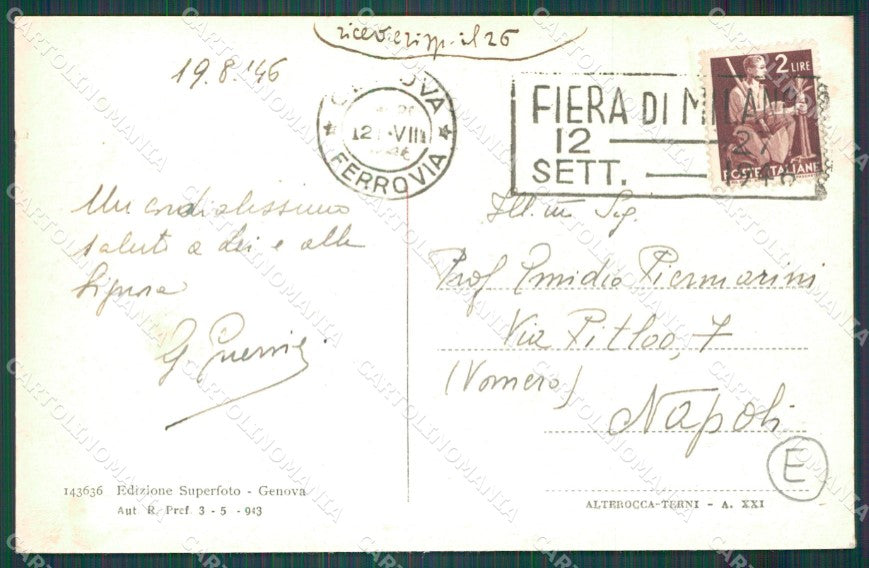 ricev. e risp. il 26
19.8.'46
GENOVA
12. VIII
FERROVIA
FIERA DI MILANO
12
27
SETT.
1946
2 LIRE
POSTE ITALIANE
Un cordialissimo
saluto a Lei e alla
Signora
G Guerrie
Ill. mo Sig.
Prof Emidio Piermarini
Via Pitloo, 7
(Vomero)
Napoli
E
143636 Edizione Superfoto - Genova
Aut R. Pref 3 - 5 - 943
ALTEROCCA-TERNI - A. XXI
CARTOLINOMANIA